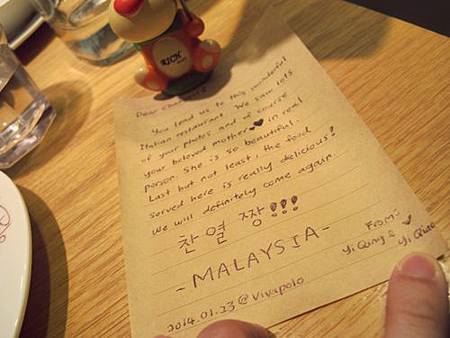 Dear Chanyeol
You lead us to this wonderful
Italian restaurant. We saw lots
of your photos and of course
your beloved mother ♥ in real
person. She is so beautiful.
Last but not least, the food
served here is really delicious!
We will definitely come again.
찬열 짱!!!
-MALAYSIA-
From:
Yi Qing &
Yi
2014.01.23 @ Vivapolo
RICH